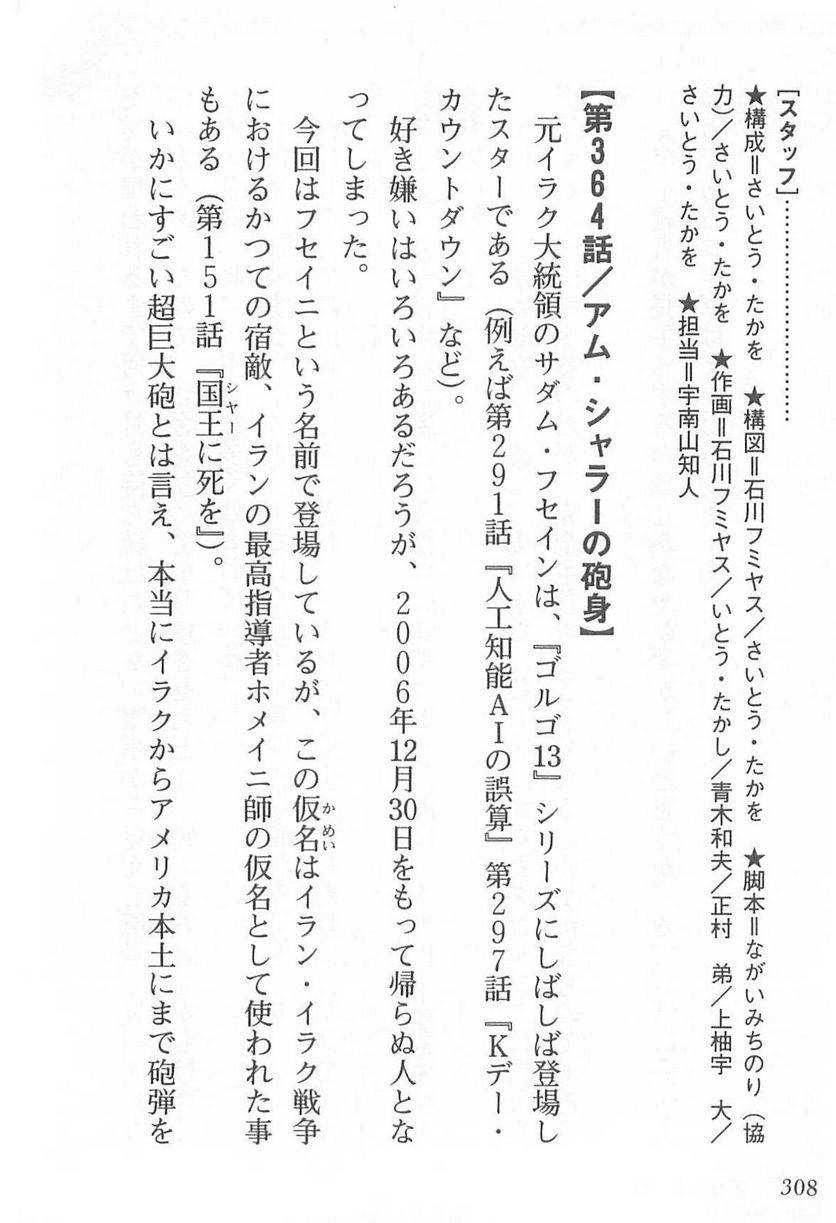 [スタッフ]…………………………
★構成＝さいとう・たかを　★構図＝石川フミヤス／さいとう・たかを　★脚本＝ながいみちのり（協
力）／さいとう・たかを　★作画＝石川フミヤス／いとう・たかし／青木和夫／正村　弟／上柚宇　大／
さいとう・たかを　★担当＝宇南山知人
【第364話／アム・シャラーの砲身】
元イラク大統領のサダム・フセインは、『ゴルゴ13』シリーズにしばしば登場し
たスターである（例えば第291話『人工知能AIの誤算』第297話『Kデー・
カウントダウン』など）。
好き嫌いはいろいろあるだろうが、2006年12月30日をもって帰らぬ人とな
ってしまった。
今回はフセイニという名前で登場しているが、この仮名はイラン・イラク戦争
における​かつての宿敵、イランの最高指導者ホメイニ師の仮名として使われた事
もある（第151話『国王に死を』）。
いかにすごい超巨大砲とは言え、本当にイラクからアメリカ本土にまで砲弾を
かめい
シャー
308